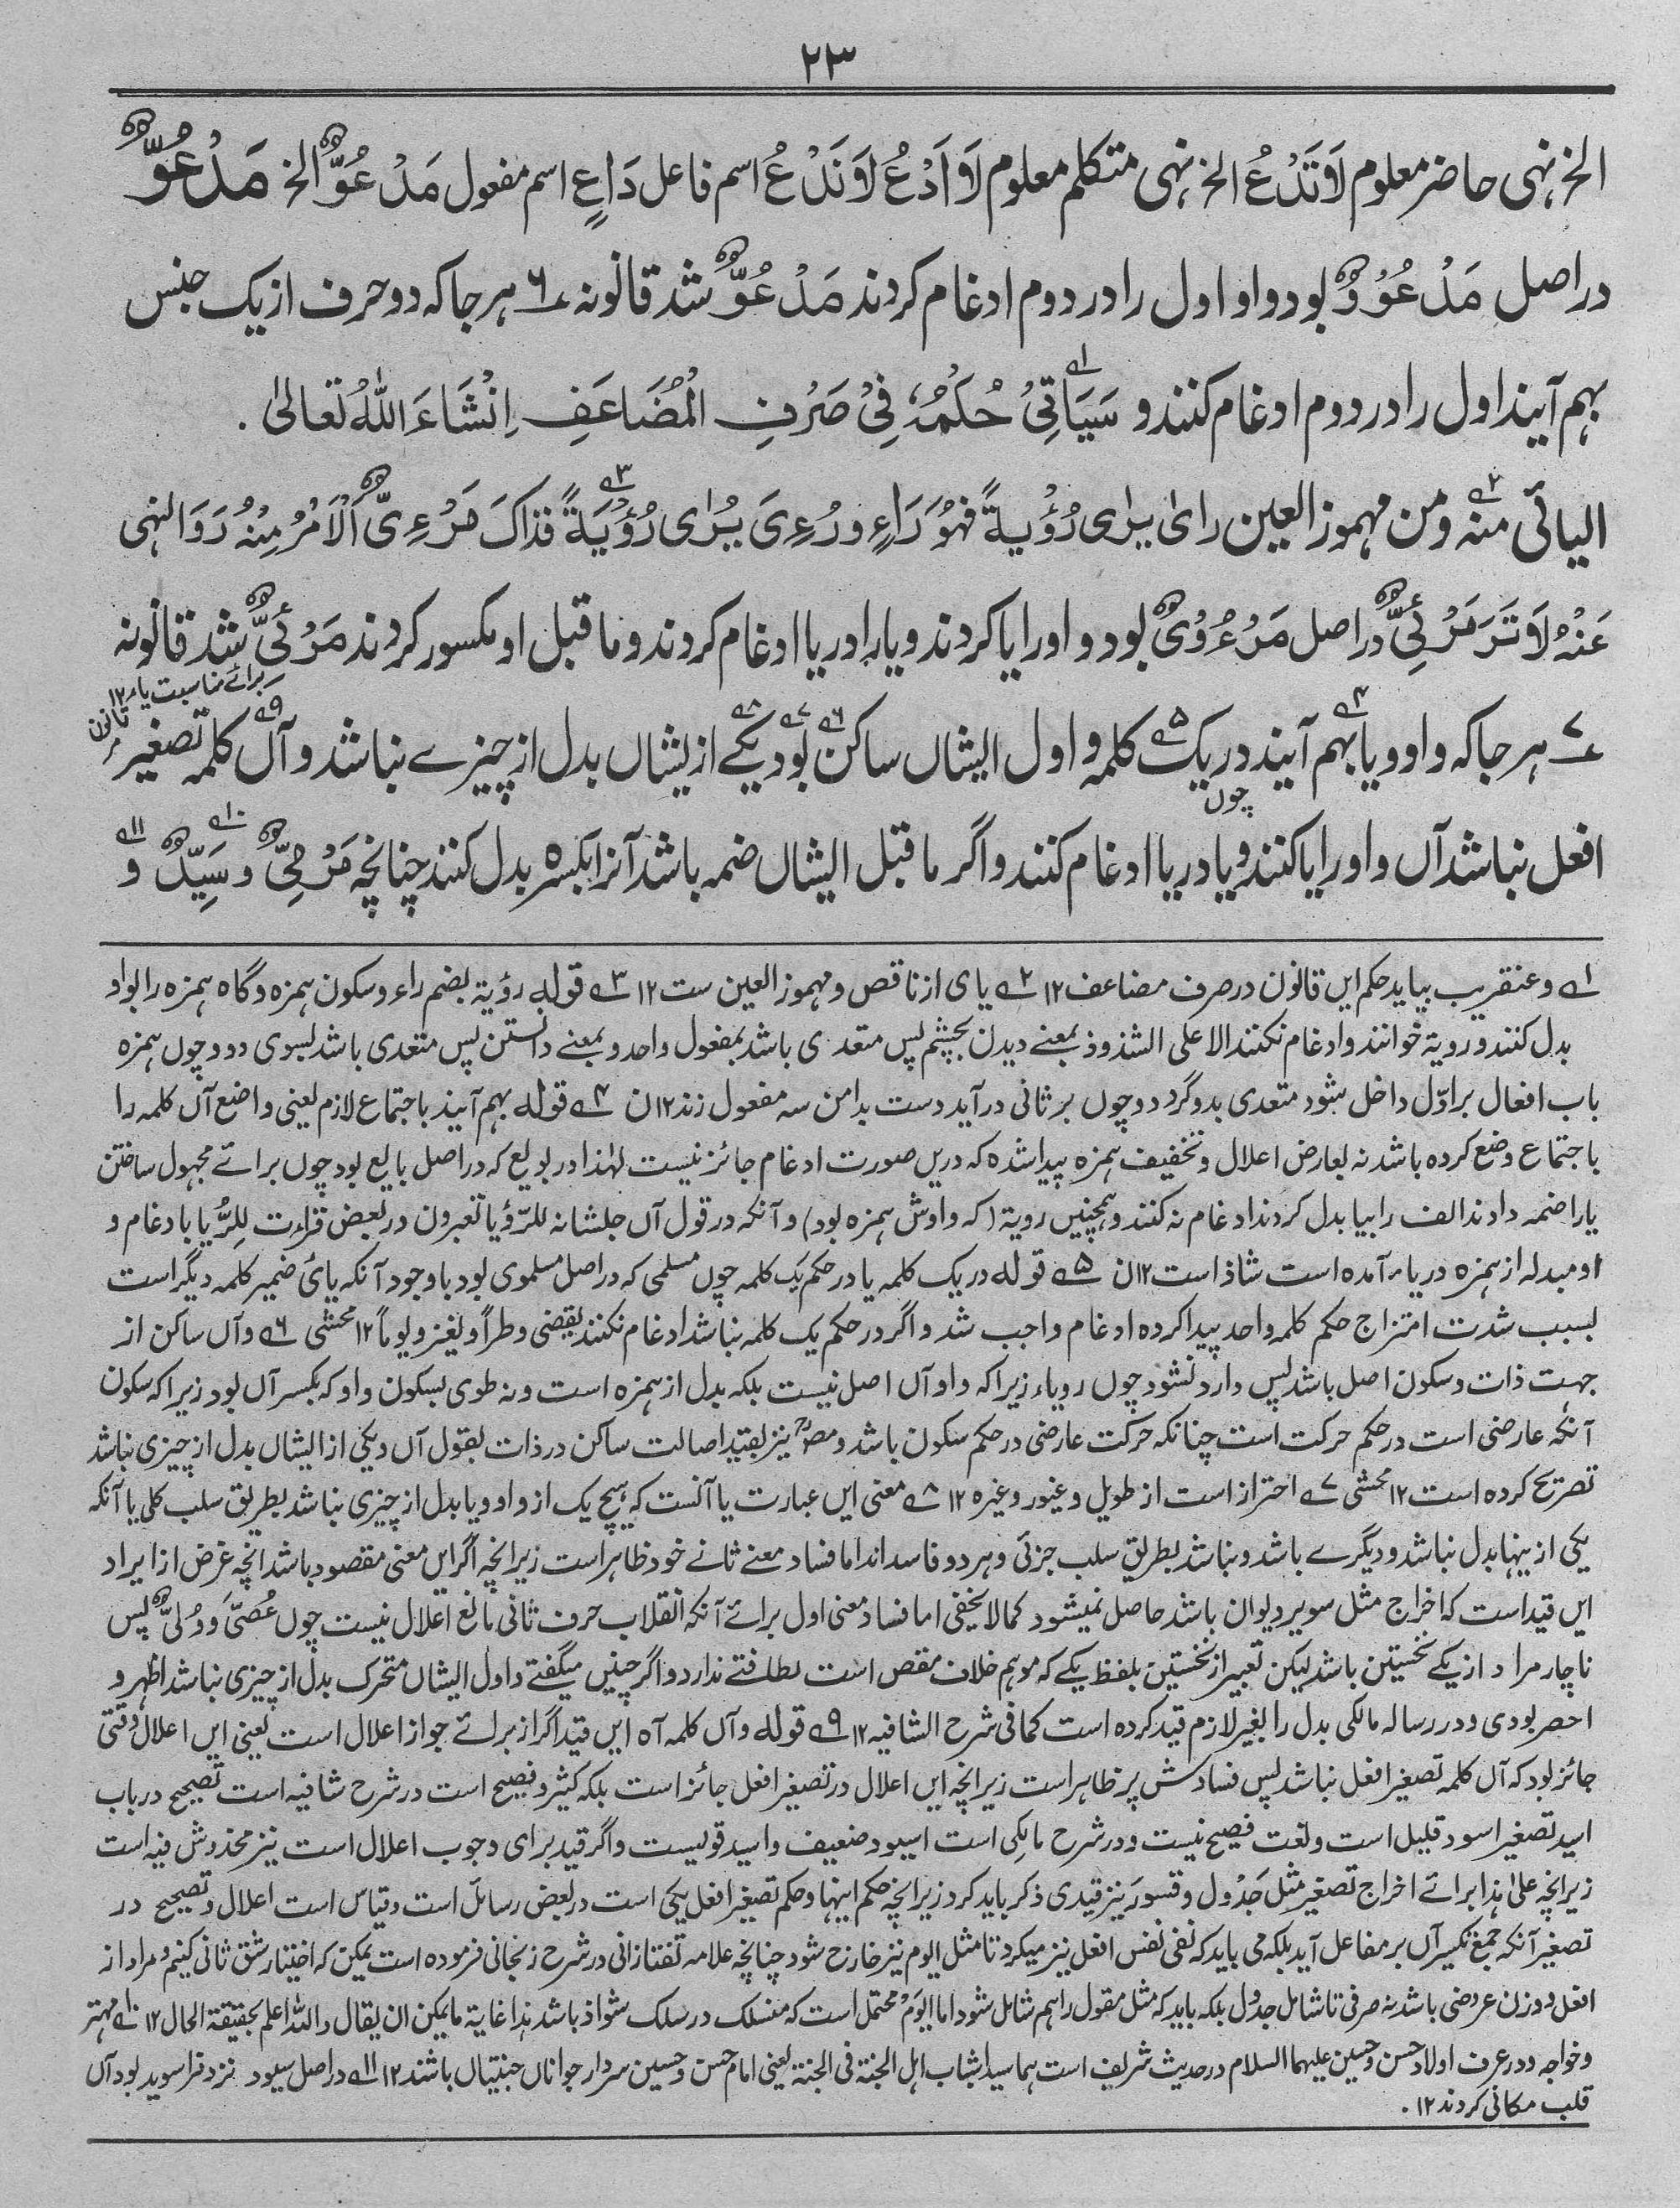 ۲۳
الخ نہی حاضر معلوم لَا تَدْعُ الخ نہی متکلم معلوم لَا اَدْعُ لَا نَدْعُ اسم فاعل دَاعٍ اسم مفعول مَدْعُوٌّ الخ مَدْعُوٌّ
در اصل مَدْعُوْوٌ بود واو اول را در دوم ادغام کردند مَدْعُوٌّ شد قانونہ ۶ ہر جا کہ دو حرف از یک جنس
بہم آیند اول را در دوم ادغام کنند و سَیَاْتِیْ حُکْمُہٗ فِیْ صَرْفِ الْمُضَاعَفِ اِنْشَاءَ اللّٰہُ تعالیٰ .
الیائی منہ ومن مہموز العین رای یرٰی رُؤْیةً فہُوَ رَاءٍ و رُءِیَ یُرٰی رُؤْیَةً فذاکَ مَرْءِیٌّ اَلْاَمْرُ مِنْہُ رَ وَالنہی
عَنْہُ لَا تَرَ مَرْئِیٌّ در اصل مَرْءُوْیٌ بود واو را یا کردند و یا را در یا ادغام کردند و ما قبل او مکسور کردند مَرْئِیٌّ شد قانونہ
برائے مناسبت یاء ۱۲
۷ ہر جا کہ واو و یا بہم آیند در یک کلمہ و اول ایشاں ساکن بود یکے از یشاں بدل از چیزے نباشد و آں کلمہ تصغیر
افعل نباشد آں واو را یا کنند و یا در یا ادغام کنند و اگر ما قبل ایشاں ضمہ باشد آنرا بکسرہ بدل کنند چنانچہ مَرْمِیٌّ و سَیِّدٌ و
۱ وعنقریب بیاید حکم این قانون در صرف مضاعف ۱۲ ۲ یای از ناقص و مہموز العین ست ۱۲ ۳ قولہ رؤیة بضم راء و سکون ہمزہ و گاہ ہمزہ را بواو
بدل کنند و رویة خوانند و ادغام نکنند الا علی الشذوذ بمعنے دیدن بچشم پس متعدی باشد بمفعول واحد و بمعنے دانستن پس متعدی باشد بسوی دو و چوں ہمزہ
باب افعال بر اوّل داخل شود متعدی بدو گردد و چوں بر ثانی در آید دست بدامن سہ مفعول زند ۱۲ ن ۴ قولہ بہم آیند باجتماع لازم یعنی واضع آں کلمہ را
باجتماع وضع کردہ باشد نہ بعارض اعلال و تخفیف ہمزہ پیدا شدہ کہ دریں صورت ادغام جائز نیست لہٰذا در بویع کہ در اصل بایع بود چوں برائے مجہول ساختن
یا را ضمہ دادند الف را بیا بدل کردند ادغام نہ کنند و ہمچنیں رویة (کہ واوش ہمزہ بود) و آنکہ در قول آں جلشانہ للرّؤیا تعبرون در بعض قراءت لِلرُّیا بادغام و
او مبدلہ از ہمزہ در یاء آمدہ است شاذ است ۱۲ ن ۵ قولہ در یک کلمہ یا در حکم یک کلمہ چوں مسلمی کہ در اصل مسلموی بود با وجود آنکہ یائ ضمیر کلمہ دیگر است
بسبب شدت امتزاج حکم کلمہ واحد پیدا کردہ ادغام واجب شد و اگر در حکم یک کلمہ نباشد ادغام نکنند یقضی وطراً و یغزو یوماً ۱۲ محشی ۶ و آں ساکن از
جہت ذات و سکون اصل باشد پس وارد نشود چوں رویاء زیرا کہ واو آں اصل نیست بلکہ بدل از ہمزہ است و نہ طوی بسکون واو کہ بکسر آں بود زیرا کہ سکون
آنکہ عارضی است در حکم حرکت است چنانکہ حرکت عارضی در حکم سکون باشد و مصرؒ نیز بقید اصالت ساکن در ذات بقول آں و یکی از ایشاں بدل از چیزی نباشد
تصریح کردہ است ۱۲ محشی ۷ احتراز است از طویل و غیور وغیرہ ۱۲ ۸ معنی ایں عبارت یا آنست کہ ہیچ یک از واو و یا بدل از چیزی نباشد بطریق سلب کلی یا آنکہ
یکی از ینہا بدل نباشد و دیگرے باشد و نباشد بطریق سلب جزئی و ہر دو فاسد اند اما فساد معنے ثانے خود ظاہر است زیرانچہ اگر ایں معنی مقصود باشد انچہ غرض از ایراد
ایں قید است کہ اخراج مثل سویر و لیوان باشد حاصل نمیشود کما لا یخفی اما فساد معنی اول برائے آنکہ انقلاب حرف ثانی مانع اعلال نیست چوں عُصَیٌّ وَ دُلیٌّ پس
ناچار مراد از یکے نخستین باشد لیکن تعبیر از نخستین بلفظ یکے کہ موہم خلاف مقص است لطافتے ندارد و اگر چنیں میگفتے و اول ایشاں متحرک بدل از چیزی نباشد اظہر و
احصر بودی و در رسالہ مالکی بدل را بغیر لازم قید کردہ است کما فی شرح الشافیہ ۱۲ ۹ قولہ و آں کلمہ آہ ایں قید اگر از برائے جواز اعلال است یعنی ایں اعلال وقتی
جائز بود کہ آں کلمہ تصغیر افعل نباشد پس فسادش پر ظاہر است زیرانچہ ایں اعلال در تصغیر افعل جائز است بلکہ کثیر و فصیح است در شرح شافیہ است تصحیح در باب
اسید تصغیر اسود قلیل است و لغت فصیح نیست و در شرح مالکی است اسیود ضعیف و اسید قویست و اگر قید برای وجوب اعلال است نیز مخدوش فیہ است
زیرانچہ علیٰ ہذا برائے اخراج تصغیر مثل جَدْوَل و قسور نیز قیدی ذکر باید کرد زیرانچہ حکم اینہا و حکم تصغیر افعل یکی است در بعض رسائل است و قیاس است اعلال و تصحیح در
تصغیر آنکہ جمع تکسیر آں بر مفاعل آید بلکہ می باید کہ نفی نفس افعل نیز میکرد تا مثل ایوم نیز خارج شود چنانچہ علامہ تفتازانی در شرح زنجانی فرمودہ است یمکن کہ اختیار شق ثانی کنیم و مراد از
افعل وزن عروضی باشد نہ صرفی تا شامل جدول بلکہ باید کہ مثل مقول را ہم شامل شود اما ایوَم محتمل است کہ منسلک در سلک شواذ باشد ہذا غایة ما یمکن ان یقال واللہ اعلم بحقیقة الحال ۱۲ ۱۰ مہتر
و خواجہ و در عرف اولاد حسن و حسین علیہما السلام در حدیث شریف است ہما سیدا شباب اہل الجنة فی الجنة یعنی امام حسن و حسین سردار جوانان جنتیاں باشند ۱۲ ۱۱ در اصل سیود نزد فرا سوید بود آں
قلب مکانی کردند ۱۲ .